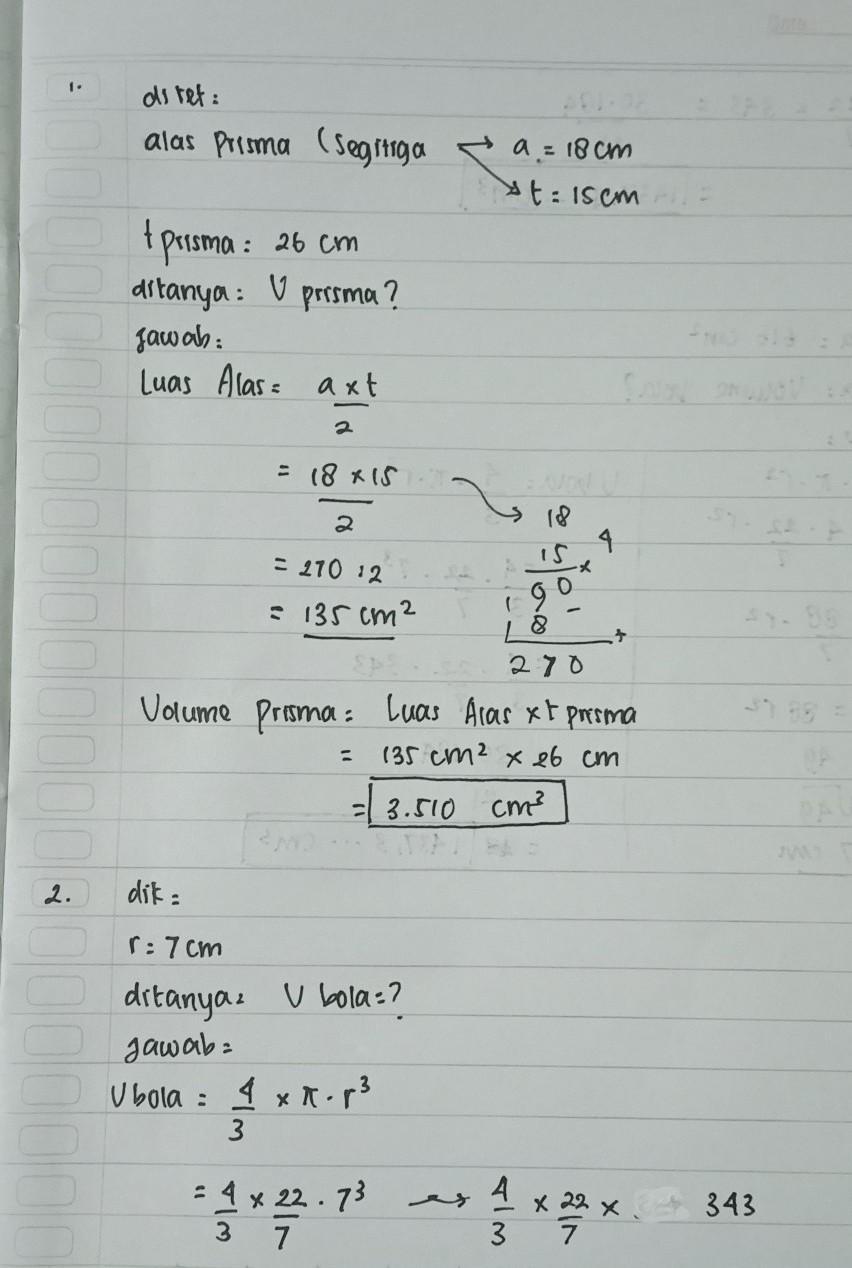 1. diket:
alas Prisma (Segitiga → a = 18 cm
→ t = 15 cm
t prisma: 26 cm
ditanya: V prisma?
Jawab:
Luas Alas = a x t
2
= 18 x 15
2
→ 18
15 x 4
= 270 : 2
90
= 135 cm²
1 9 -
1 8 +
270
Volume Prisma = Luas Alas x t prisma
= 135 cm² x 26 cm
= 3.510 cm³
2. dik =
r = 7 cm
ditanya: V bola =?
Jawab =
V bola = 4/3 x π . r³
= 4/3 x 22/7 . 7³ → 4/3 x 22/7 x 343